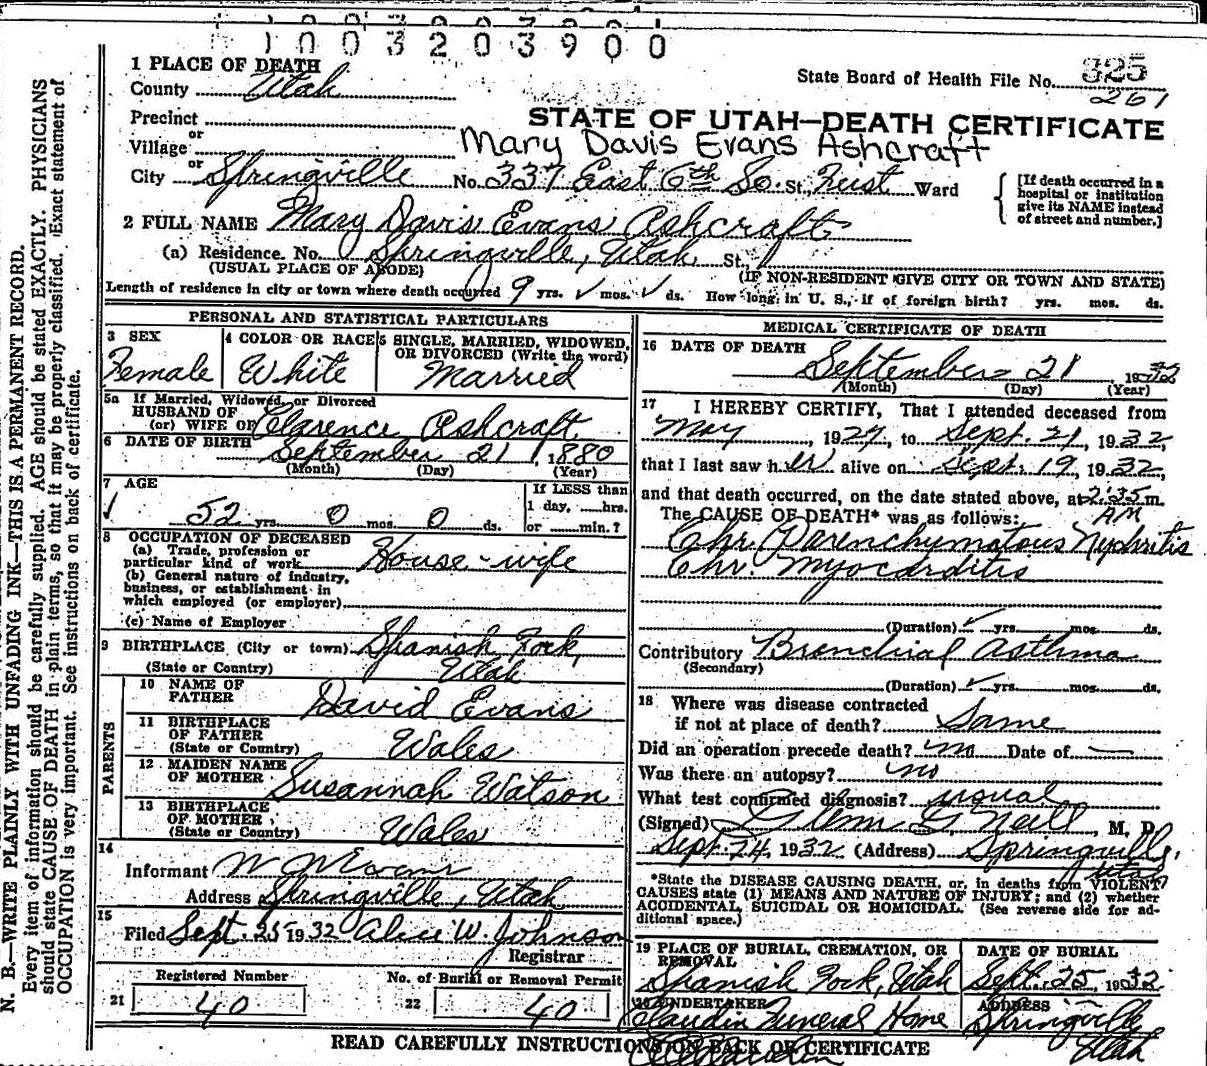 1003203900
1 PLACE OF DEATH
County Utah
State Board of Health File No. 325
261
Precinct
or
STATE OF UTAH—DEATH CERTIFICATE
Village
Mary Davis Evans Ashcraft
or
City Springville No. 337 East 6th So. St., First Ward
[If death occurred in a hospital or institution give its NAME instead of street and number.]
2 FULL NAME Mary Davis Evans Ashcraft
(a) Residence. No. Springville, Utah St.,
(USUAL PLACE OF ABODE) (IF NON-RESIDENT GIVE CITY OR TOWN AND STATE)
Length of residence in city or town where death occurred 9 yrs. ✓ mos. ✓ ds. How long in U. S., if of foreign birth? yrs. mos. ds.
PERSONAL AND STATISTICAL PARTICULARS
3 SEX
Female
4 COLOR OR RACE
White
5 SINGLE, MARRIED, WIDOWED, OR DIVORCED (Write the word)
Married
5a If Married, Widowed, or Divorced
HUSBAND OF
(or) WIFE OF Clarence Ashcraft
6 DATE OF BIRTH September 21, 1880
(Month) (Day) (Year)
7 AGE
52 yrs. 0 mos. 0 ds.
If LESS than
1 day, hrs.
or min.?
8 OCCUPATION OF DECEASED
(a) Trade, profession or
particular kind of work House-wife
(b) General nature of industry,
business, or establishment in
which employed (or employer)
(c) Name of Employer
9 BIRTHPLACE (City or town) Spanish Fork,
(State or Country) Utah
PARENTS
10 NAME OF
FATHER David Evans
11 BIRTHPLACE
OF FATHER
(State or Country) Wales
12 MAIDEN NAME
OF MOTHER Susannah Watson
13 BIRTHPLACE
OF MOTHER
(State or Country) Wales
14
Informant W M Evans
Address Springville, Utah
15
Filed Sept. 25 1932 Alice W. Johnson
Registrar
Registered Number
21 40
No. of Burial or Removal Permit
22 40
MEDICAL CERTIFICATE OF DEATH
16 DATE OF DEATH
September 21 1932
(Month) (Day) (Year)
17 I HEREBY CERTIFY, That I attended deceased from
May, 1927, to Sept. 21, 1932,
that I last saw her alive on Sept. 19, 1932,
and that death occurred, on the date stated above, at 2:35 m.
AM
The CAUSE OF DEATH* was as follows:
Chr. Parenchymatous Nephritis
Chr. Myocarditis
(Duration) ✓ yrs. mos. ds.
Contributory Bronchial Asthma
(Secondary)
(Duration) ✓ yrs. mos. ds.
18 Where was disease contracted
if not at place of death? Same
Did an operation precede death? no Date of —
Was there an autopsy? no
What test confirmed diagnosis? usual
(Signed) Glenn G Neill, M. D.
Sept 24, 1932 (Address) Springville,
Utah
*State the DISEASE CAUSING DEATH, or, in deaths from VIOLENT
CAUSES state (1) MEANS AND NATURE OF INJURY; and (2) whether
ACCIDENTAL, SUICIDAL OR HOMICIDAL. (See reverse side for ad-
ditional space.)
19 PLACE OF BURIAL, CREMATION, OR
REMOVAL
Spanish Fork, Utah
DATE OF BURIAL
Sept. 25, 1932
20 UNDERTAKER
Claudin Funeral Home
ADDRESS
Springville
Utah
READ CAREFULLY INSTRUCTIONS ON BACK OF CERTIFICATE
N. B.—WRITE PLAINLY WITH UNFADING INK—THIS IS A PERMANENT RECORD.
Every item of information should be carefully supplied. AGE should be stated EXACTLY. PHYSICIANS
should state CAUSE OF DEATH in plain terms, so that it may be properly classified. Exact statement of
OCCUPATION is very important. See instructions on back of certificate.